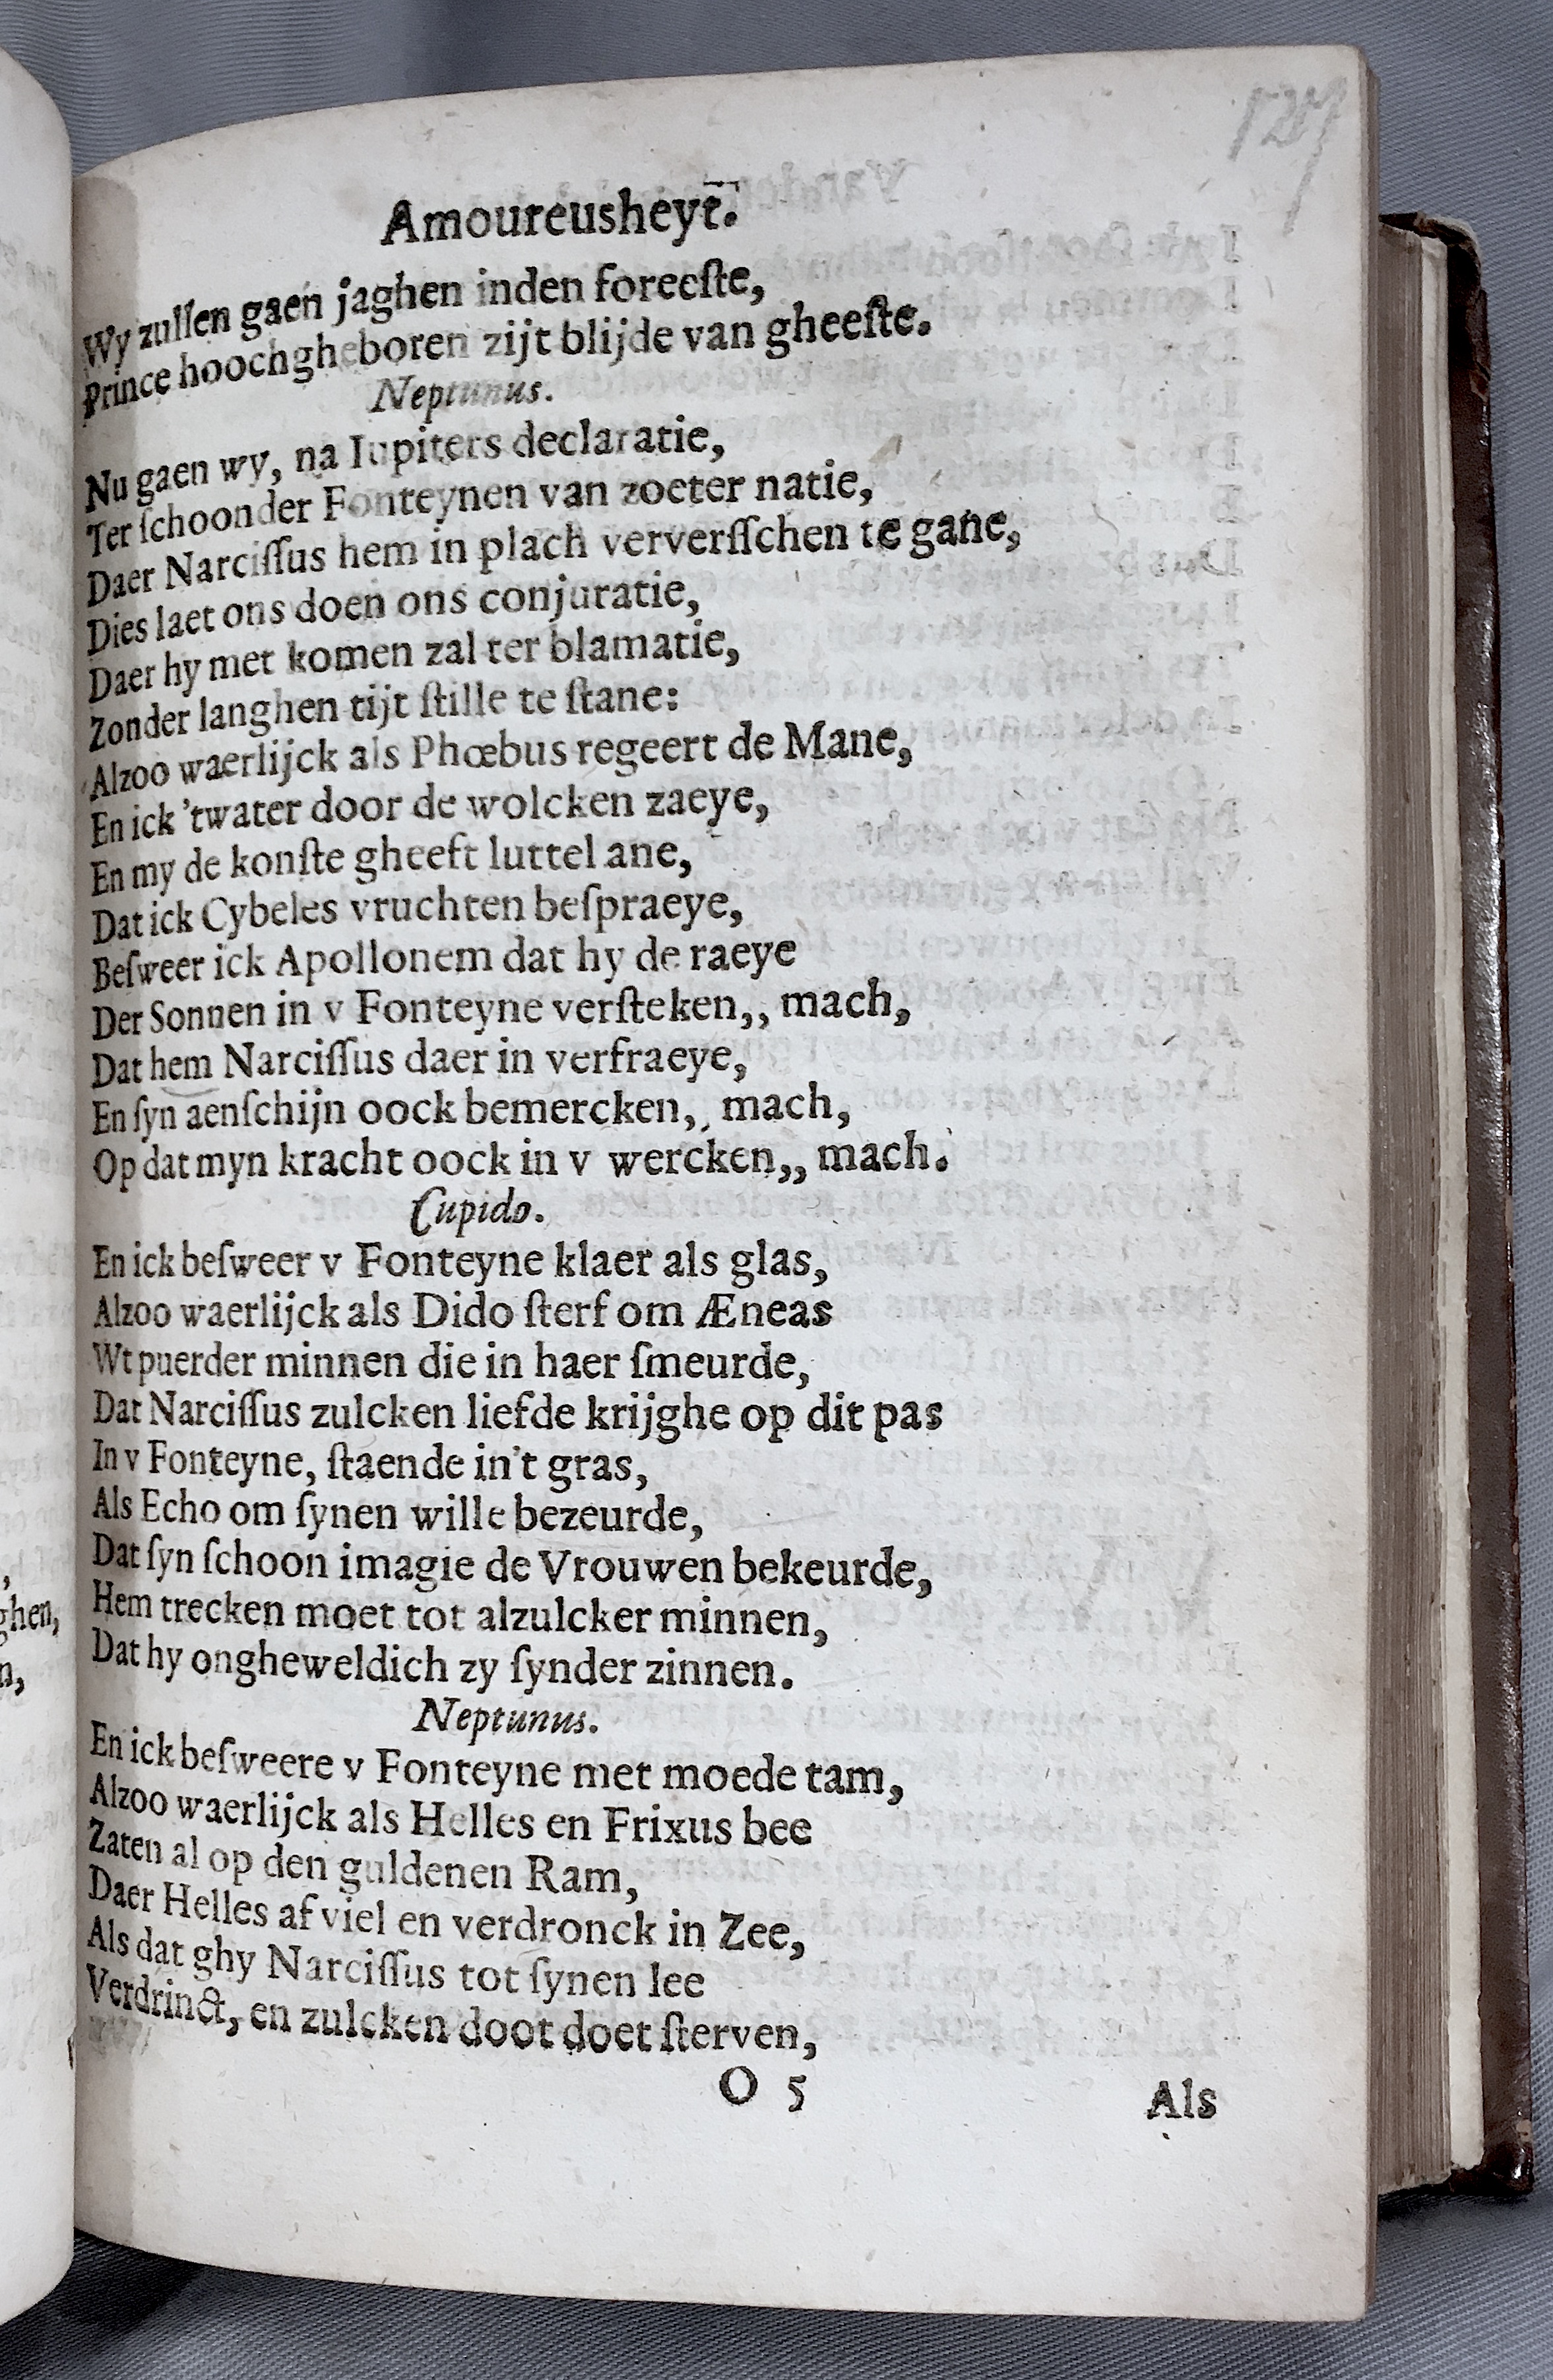 Amoureusheyt.
Wy zullen gaen jaghen inden foreeſte,
Prince hoochgheboren zijt blijde van gheeſte.
Neptunus.
Nu gaen wy, na Iupiters declaratie,
Ter ſchoonder Fonteynen van zoeter natie,
Daer Narciſſus hem in plach ververſſchen te gane,
Dies laet ons doen ons conjuratie,
Daer hy met komen zal ter blamatie,
Zonder langhen tijt ſtille te ſtane:
Alzoo waerlijck als Phœbus regeert de Mane,
En ick 'twater door de wolcken zaeye,
En my de konſte gheeft luttel ane,
Dat ick Cybeles vruchten beſpraeye,
Beſweer ick Apollonem dat hy de raeye
Der Sonnen in v Fonteyne verſteken,, mach,
Dat hem Narciſſus daer in verfraeye,
En ſyn aenſchijn oock bemercken,, mach,
Op dat myn kracht oock in v wercken,, mach.
Cupido.
En ick beſweer v Fonteyne klaer als glas,
Alzoo waerlijck als Dido ſterf om Æneas
Wt puerder minnen die in haer ſmeurde,
Dat Narciſſus zulcken liefde krijghe op dit pas
In v Fonteyne, ſtaende in't gras,
Als Echo om ſynen wille bezeurde,
Dat ſyn ſchoon imagie de Vrouwen bekeurde,
Hem trecken moet tot alzulcker minnen,
Dat hy ongheweldich zy ſynder zinnen.
Neptunus.
En ick beſweere v Fonteyne met moede tam,
Alzoo waerlijck als Helles en Frixus bee
Zaten al op den guldenen Ram,
Daer Helles af viel en verdronck in Zee,
Als dat ghy Narciſſus tot ſynen lee
Verdrinct, en zulcken doot doet ſterven,
O 5
Als